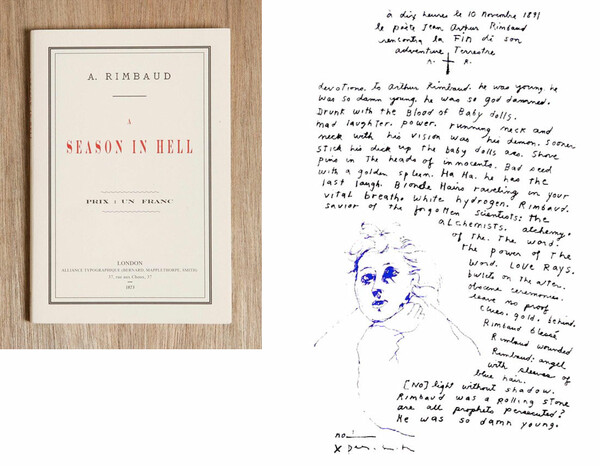 A. RIMBAUD
A
SEASON IN HELL
PRIX : UN FRANC
LONDON
ALLIANCE TYPOGRAPHIQUE (BERNARD, MAPPLETHORPE, SMITH)
37, rue aux Choux, 37
1873
à dix heures le 10 novembre 1891
le poète Jean Arthur Rimbaud
rencontra la Fin de son
adventure Terrestre
A. R.
devotions. to Arthur Rimbaud. he was young. he
was so damn young. he was so god damned.
Drunk with the Blood of Baby dolls.
mad laughter. power. running neck and
neck with his vision was his demon. sooner
stick his dick up the baby dolls ass. Shove
pins in the heads of innocents. Bad seed
with a golden spleen. Ha Ha. he has the
last laugh. Blonde Hairs raveling in your
vital breath. white hydrogen. Rimbaud.
savior of the forgotten scientists: the
alchemists. alchemy.
of the. The word.
the power of the
word. LOVE RAYS.
bullets on the alter.
obscene ceremonies.
leave no proof
clues. gold. behind.
Rimbaud blessé
Rimbaud wounded
Rimbaud: angel
with sleeves of
blue hair.
[NO] light without shadow.
Rimbaud was a rolling stone
are all prophets persecuted?
He was so damn young.
no.
X